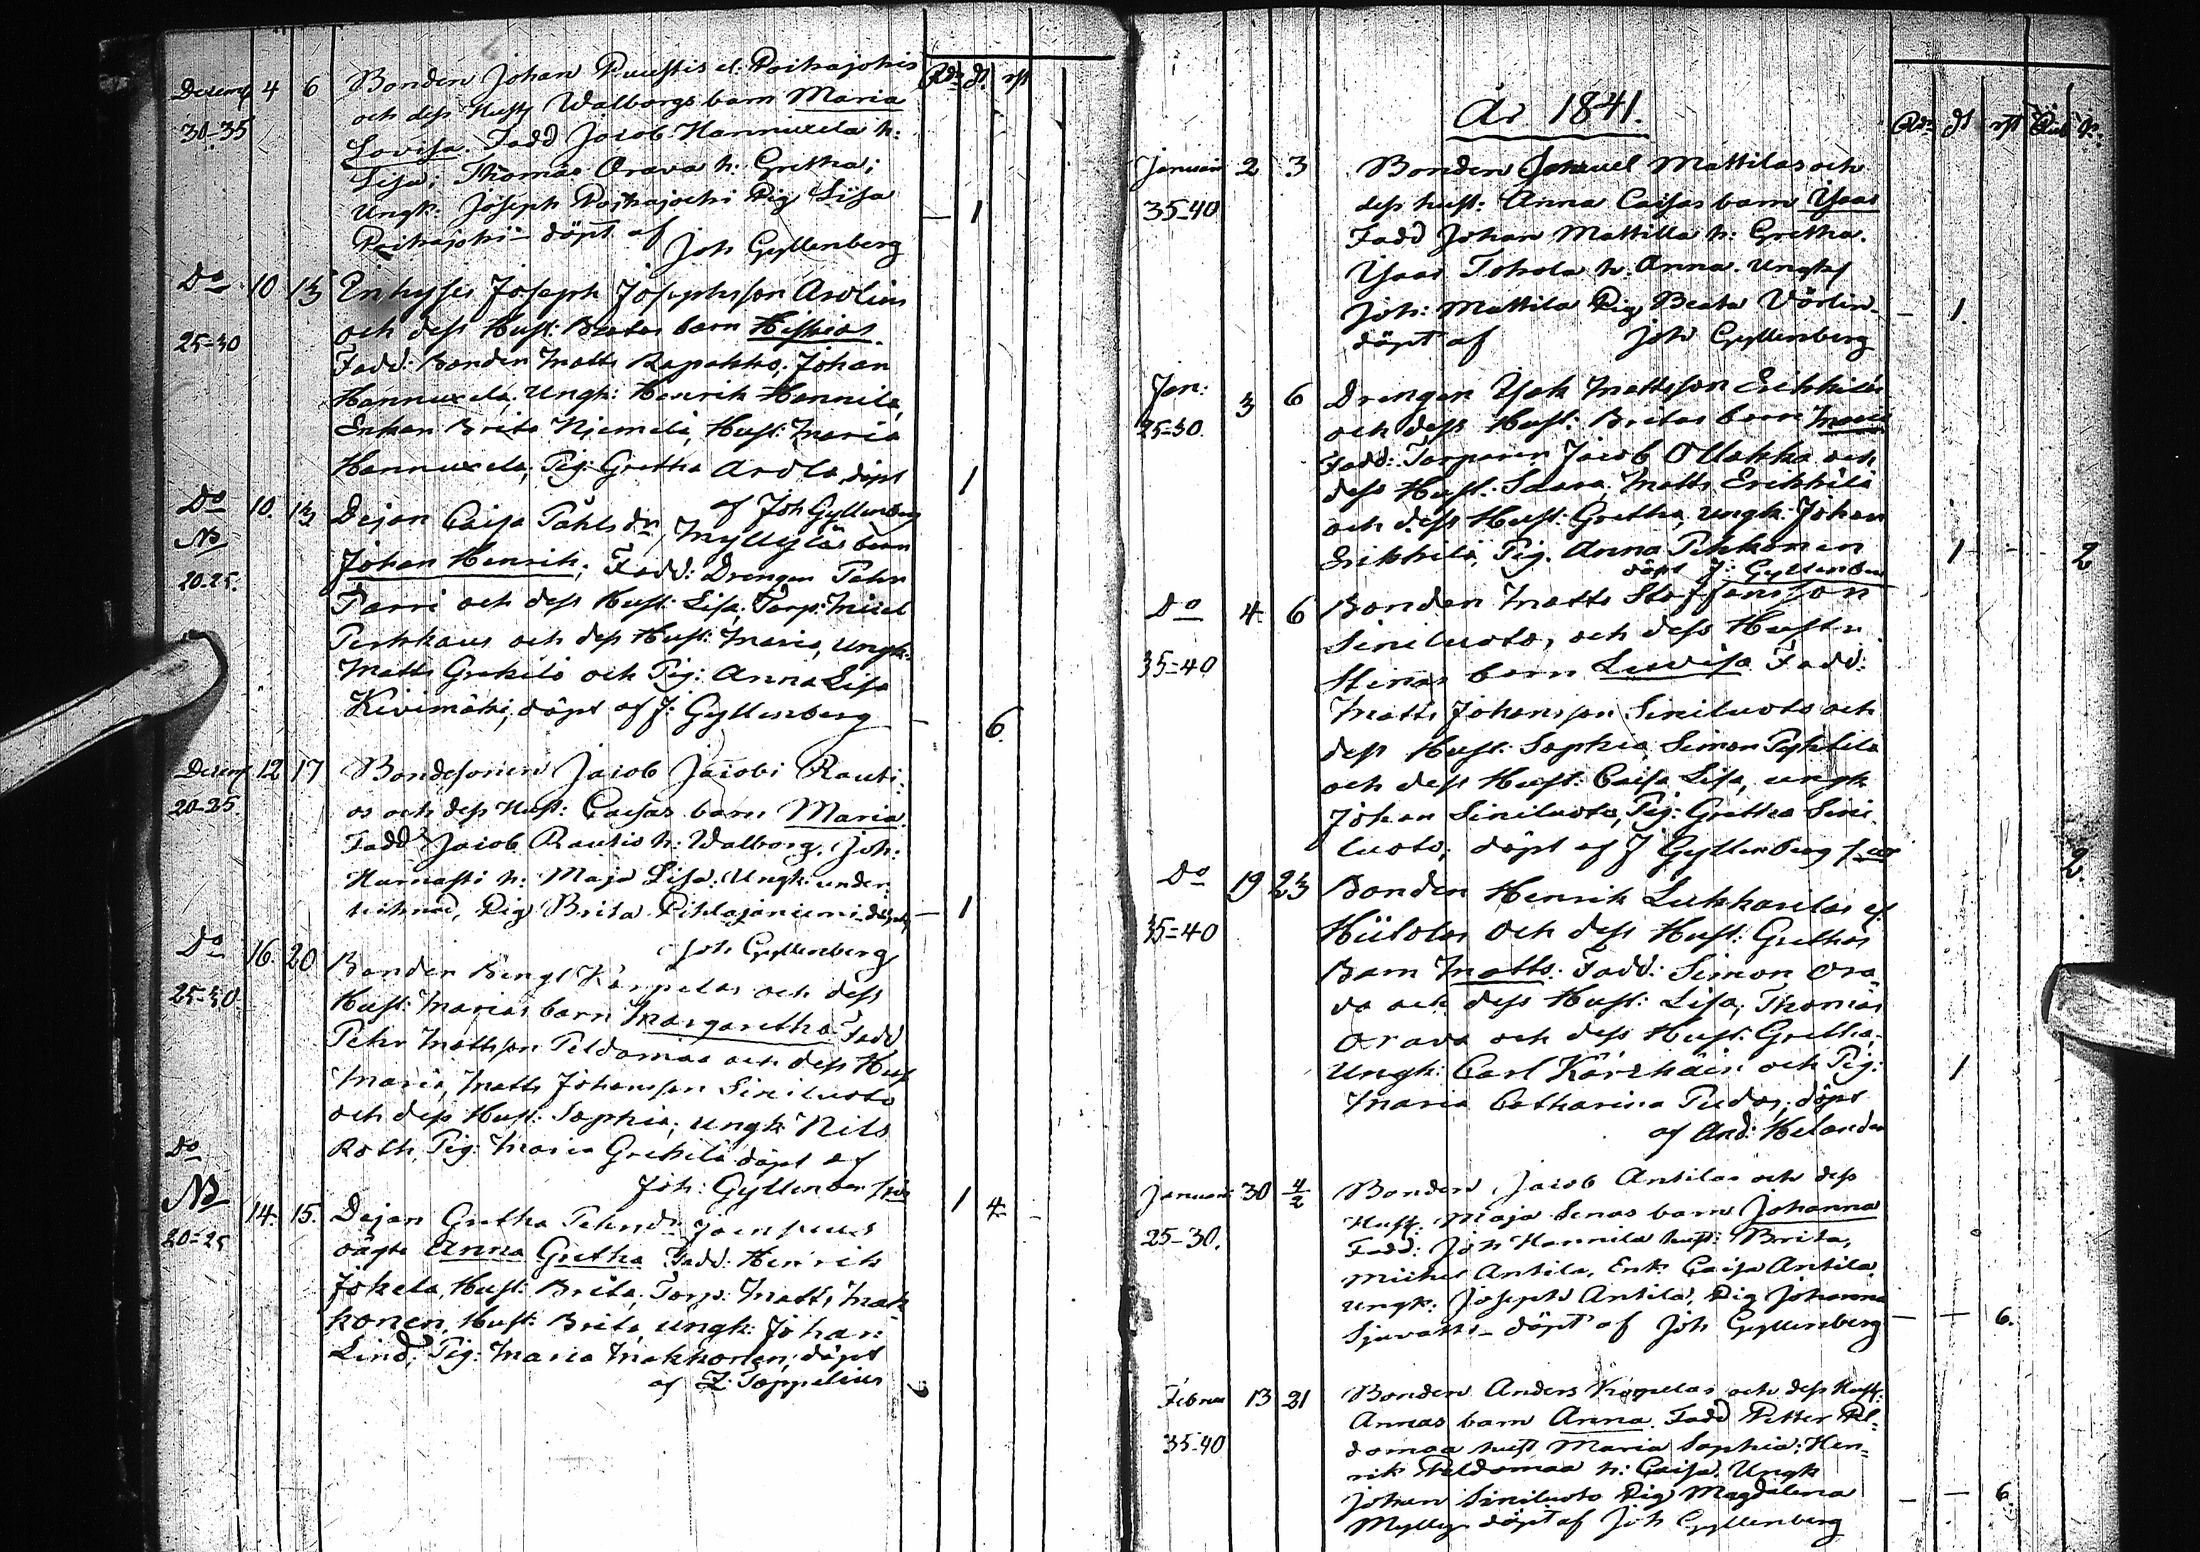 Rdr dt rst
Decemb 4 6 Bonden Johan Ruustis el: Poikajokis
och dess Hust Walborgs barn Maria
30-35 Lovisa. Fadd Jacob Hannuxela h:
Lisa; Thomas Orava h: Gretha;
Ungk: Joseph Poikajoki Pig Lisa — 1
Poikajoki — döpt af Joh Gyllenberg
Do 10 13 Joseph Josephsson Arolius
och dess Hust: Beatas barn
25-30
Fadd: Bonden Matts Rapakko, Johan
Hannuxela, Ungk: Henrik Hannila,
Enkan Brita Niemelä, Hust: Maria
Hannuxela; Pig: Gretha Arola, döpt 1
af Joh Gyllenberg
Do 10. 13 Dejan Caisa Påhlsdr, Myllyläs barn
NB Johan Henrik; Fadd: Drengen Pehr
20-25. Parri och dess Hust: Lisa, Torp: Michel
och dess Hust: Maria, Ungk:
Matts Grekilä och Pig: Anna Lisa
Kivimäki, döpt af J: Gyllenberg — 6.
Decemb 12 17 Bondesonen Jacob Jacobi Rauti-
20-25. os och dess Hust: Caisas barn Maria.
Fadd Jacob Rautio h: Walborg. Joh:
h: Maja Lisa. Ungk: under-
tecknad, Pig Brita Pihlajaniemi — 1
Joh Gyllenberg
Do 16. 20 Bonden Bengt Kärpelas och dess
25-30. Hust: Marias barn Margaretha. Fadd
Pehr Mattsson Peldomaa och dess Hust
Maria, Matts Johansson Siniluoto
och dess Hust: Sophia, ungk: Nils
Roth, Pig: Maria Grekilä döpt af
Joh: Gyllenberg
Do
NB 14. 15. Dejan Gretha Pehrsdr 1 4 -
20-25 oägta Anna Gretha Fadd: Henrik
Jokela, Hust: Brita, Torp: Matts Mak-
konen, Hust: Brita, ungk: Johan
Lind, Pig: Maria Makkonen; döpt
af Z: Toppelius
År 1841.
Rdr dt rst Rub k:
Januari 2 3 Bonden Mattilas och
35-40 dess hust: Anna Caisas barn Ysaac
Fadd Johan Mattila h: Gretha.
Ysaac Tokola h: Anna. Ungk
Joh: Mattila Pig Beata Vörlin — 1.
döpt af Joh Gyllenberg
Jan: 3 6 Drengen Ysak Mattsson Erikkiläs
25-30. och dess Hust: Britas barn Maria
Fadd: Torparen Jacob Ollakka och
dess Hust: Saara, Matts Erikkilä
och dess Hust: Gretha, ungk: Johan
Erikkilä, Pig. Anna Pekkonen 1 - - 2
döpt J: Gyllenberg
Do 4. 6 Bonden Matts Staffansson
Siniluoto, och dess Hustru
35=40 Stinas barn Lowisa. Fadd:
Matts Johansson Siniluoto och
dess Hust: Sophia, Simon
och dess Hust: Caisa Lisa, ungk
Johan Siniluoto, Pig: Gretha Sini-
luoto; döpt af J Gyllenberg 2.
Do 19 23 Bonden Henrik Lukkarilas el.
35=40 och dess Hust: Grethas
Barn Matts. Fadd: Simon Ora-
va och dess Hust: Lisa, Thomas
Orava och dess Hust: Gretha,
Ungk: Carl och Pig: 1
Maria Catharina Pudas; döpt
af And: Helander
Januari 30 4/2 Bonden Jacob Antilas och dess
Hust: Maja Senas barn Johanna
25-30. Fadd: Joh Hannila hust: Brita,
Michel Antila, Enk: Caisa Antila.
Ungk: Joseph Antila, Pig Johanna
— döpt af Joh Gyllenberg — — 6.
Februa 13 21 Bonden Anders Kärpelas och dess Hust:
Annas barn Anna. Fadd Petter Pel-
35-40 domaa hust Maria Sophia; Hen-
rik Peldomaa h: Caisa. Ungk
Johan Siniluoto Pig Magdalena — — 6.
Mylly döpt af Joh Gyllenberg